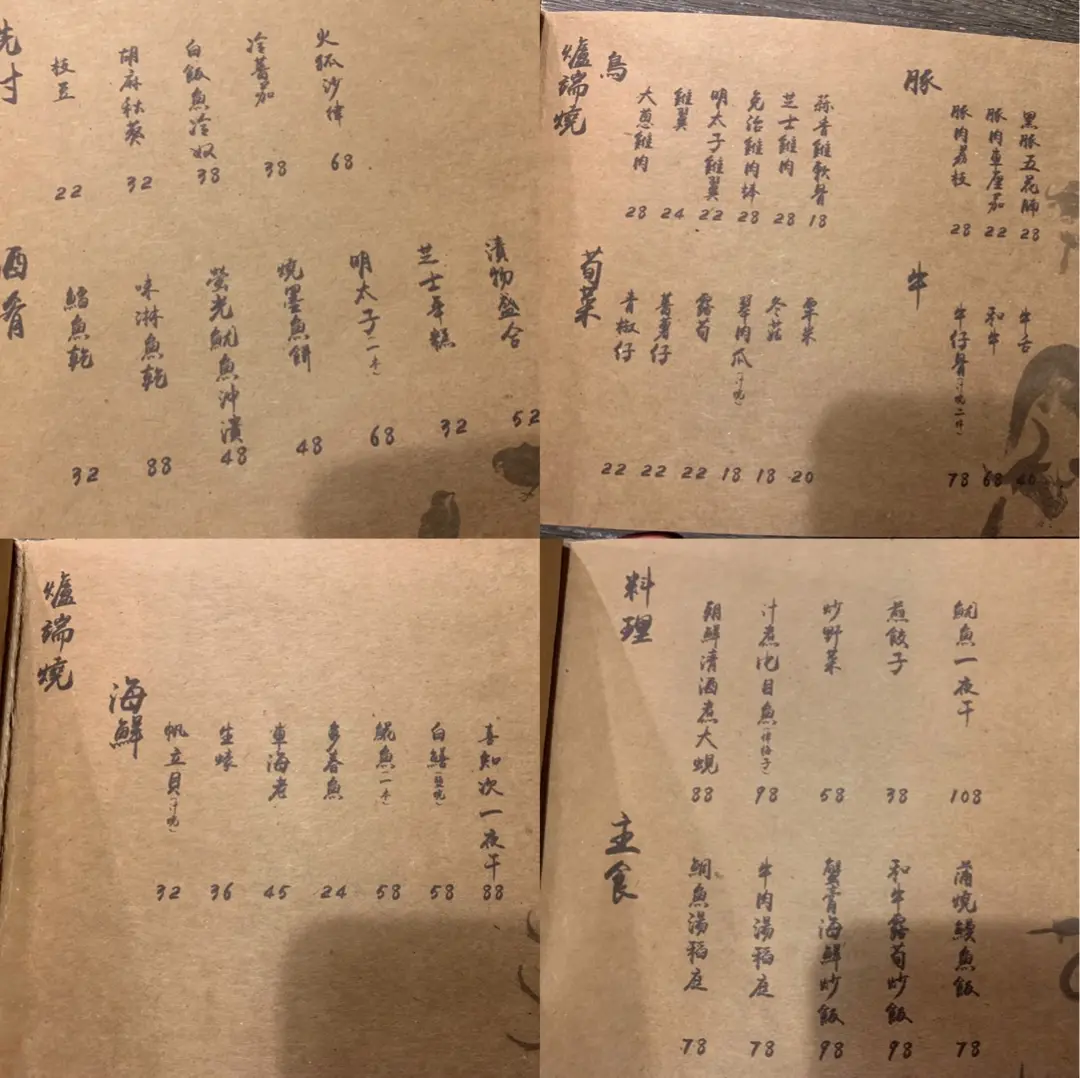 先付
枝豆
22
胡麻秋葵
32
白飯魚冷奴
38
冷蕃茄
38
火弧沙律
68
酒肴
鱈魚乾
32
味淋魚乾
88
螢光魷魚沖漬
48
燒墨魚餅
48
明太子(一本)
68
芝士年糕
32
漬物盛合
52
爐端燒
鳥
大蔥雞肉
28
雞翼
24
明太子雞翼
22
免治雞肉棒
28
芝士雞肉
28
蒜香雞軟骨
18
豚
豚肉荔枝
28
豚肉車厘茄
22
黑豚五花腩
28
荀菜
青椒仔
22
蕃薯仔
22
露荀
22
翠肉瓜(汁燒)
18
冬菇
18
粟米
20
牛
牛仔骨(汁燒二件)
78
和牛
68
牛舌
40
爐端燒
海鮮
帆立貝(汁燒)
32
生蠔
36
車海老
45
多春魚
24
魚(一本)
58
白鱔(鹽燒)
58
喜知次一夜干
88
料理
朝鮮清酒煮大蜆
88
汁煮比目魚
98
炒野菜
58
煎餃子
38
魷魚一夜干
108
主食
鯛魚湯稻庭
78
牛肉湯稻庭
78
蟹膏海鮮炒飯
98
和牛露荀炒飯
98
蒲燒鰻魚飯
78